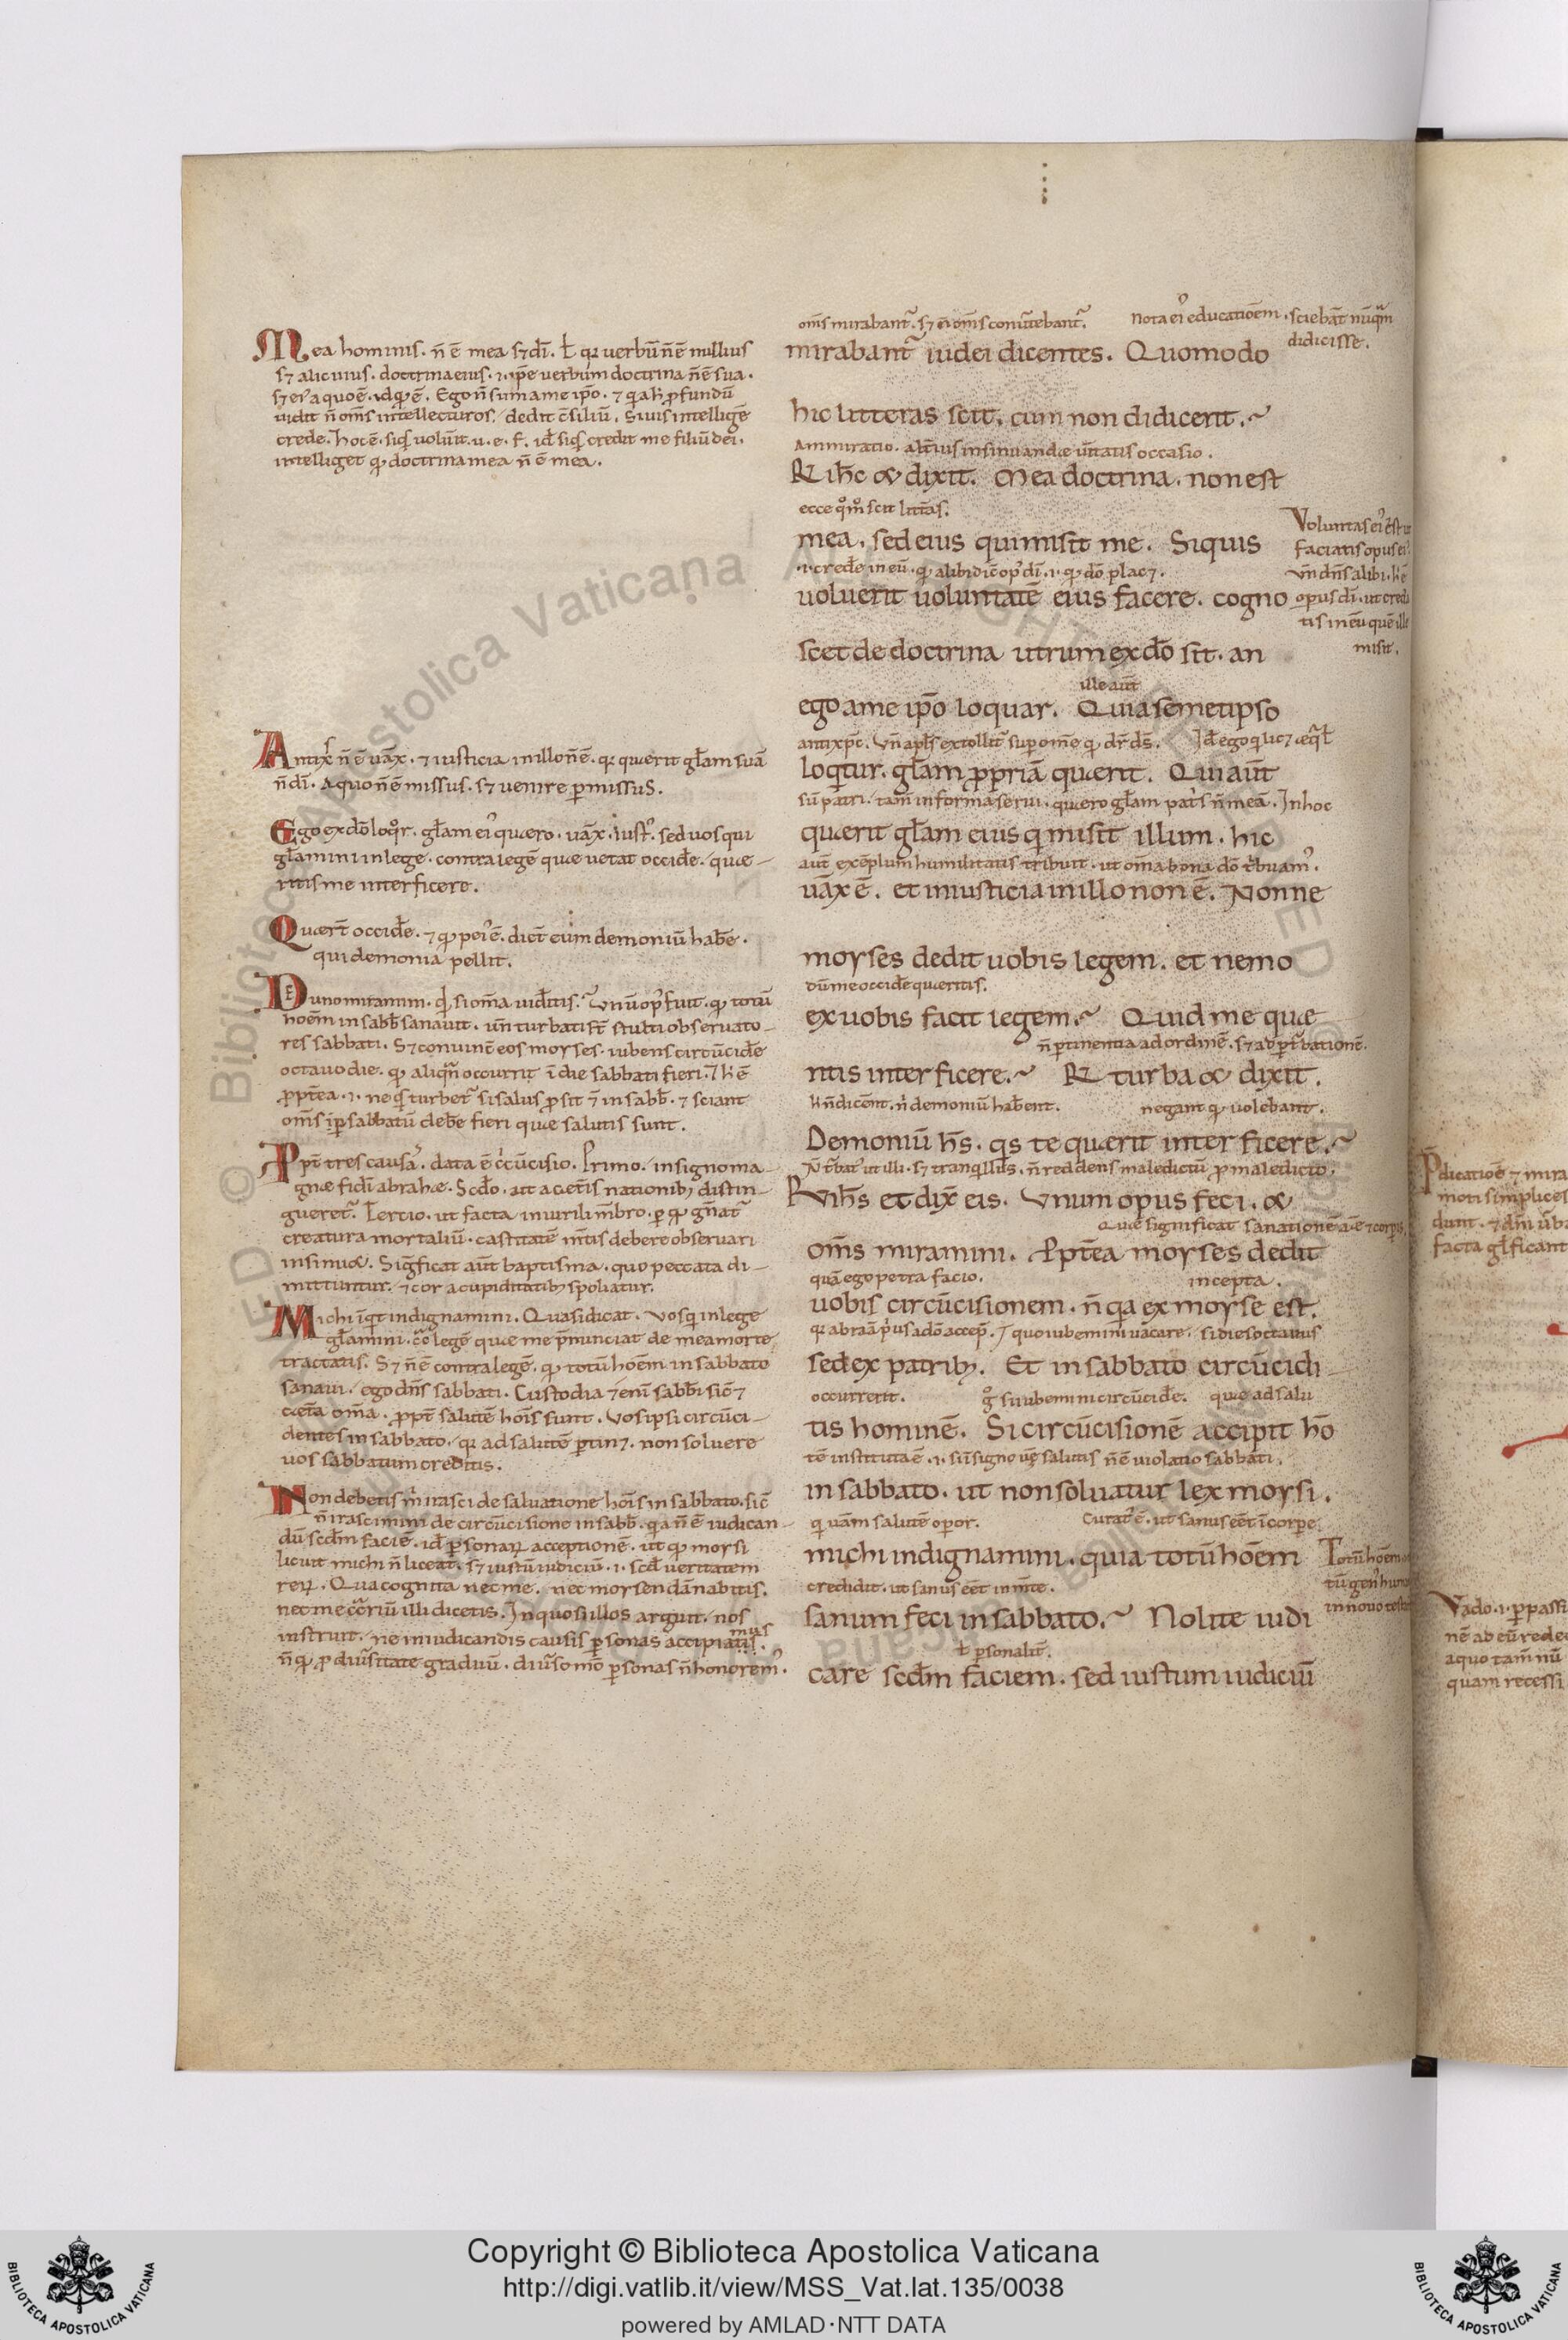 Mea hominis. n̄ ē mea s; dī. ł qꝛ uerbū n̄ ē nullius
s; alicuius. doctrina eius. .i. ip̄e uerbum doctrina n̄ ē sua.
s; eiꝰ a quo ē. id qđ ē. Ego n̄ sum a me ip̄o. ⁊
uidit n̄ om̄s intellecturos. dedit c̄siliū. Si uis intelligē
crede. Hoc ē. siqͥs uolūit. u. e. f. id ē siqͥs credit me filiū dei.
intelliget qđ doctrina mea n̄ ē mea.
n̄ ē uāx. ⁊ iusticia in illo n̄ ē. qꝛ querit gl̄am suā
n̄ dī. A quo n̄ ē missus. s; uenire ꝑmissus.
Ego ex dō loqͦr. gl̄am eiꝰ quero. uāx. iustꝰ. sed uos qui
gl̄amini in lege. contra legē que uetat occid̄e. que-
ritis me interficere.
Querт̄ occid̄e. ⁊ qđ peiꝰ ē. dict̄ eum demoniū hab̄e.
qui demonia pellit.
uno miramini. qͥd si om̄a uid̄itis. Vnū opꝰ fuit. qđ totū
hoēm in sabb̄ sanauit. un̄ turbati s̄t stulti obseruato-
res sabbati. S; conuincē eos moyses. iubens circūcid̄e
octauo die. qđ aliqn̄ occurrit ī die sabbati fieri. ⁊ h̄ ē
ꝓpt̄ea .i. ne qͥs turbet̄ si salus ꝓsit ⁊ in sabb̄. ⁊ sciant
om̄s ip̄ sabbatū deb̄e fieri que salutis sunt.
Ppt̄ tres causas. data ē circūcisio. Primo. in signo ma-
gne fidei abrahe. Scd̄o. ut a cet̄is nationibꝫ distin-
gueret̄. Tercio. ut facta in uirili m̄bro. ꝑ qđ gn̄at̄
creatura mortaliū. castitatē m̄tis debere obseruari
insinuet. Sigficat aūt baptisma. quo peccata di-
mittuntur. ⁊ cor a cupiditatibꝫ spoliatur.
Michi īqͥt indignamini. Quasi dicat. Vos qͥ in lege
gl̄amini. c̄ͣ legē que me p̄nunciat de mea morte
tractatis. S; n̄ ē contra legē. qđ totū hoēm in sabbato
sanaui. ego dn̄s sabbati. Custodia ⁊enī sabb̄i sic ⁊
cet̄a om̄a. ꝓpt̄ salutē hoīs sunt. Vos ipsi circūci-
dentes in sabbato. qꝛ ad salutē ꝑtin;. non soluere
uos sabbatum creditis.
Non debetis m̄ irasci de saluatione hoīs in sabbato. sic̄
n̄ irascimini de circūcisione in sabb̄. qͥa n̄ ē iudican-
dū scd̄m faciē. id ē ꝑsonaꝝ acceptionē. ut qđ moysi
licuit michi n̄ liceat. s; iustū iudiciū. .i. scd̄ ueritatem
rerꝝ. Qua cognita nec me. nec moysen dānabitis.
nec me c̄ͣriū illi dicetis. In quos illos arguit. nos
instruit. ne in iudicandis causis ꝑsonas accipiatis.
mus
n̄ qđ ꝓ diūsitate graduū. diūso m̄o ꝑsonas n̄ honoremꝰ.
om̄s mirabant̄. s; n̄ om̄s conūtebant̄.
nota eiꝰ educatioēm. sciebāt nūqͣm
didicisse.
mirabant̄ iudei dicentes. Quomodo
hic litteras scit. cum non didicerit.
Ammiratio. altius insinuande ūitatis occasio.
R̄ ih̄c & dixit. Mea doctrina. non est
ecce qͦmͦ scit litt̄as.
mea. sed eius qui misit me. Siquis
.i. cred̄e in eū. qđ alibi dic̄ opꝰ dī. .i. qđ dō plac;.
uoluerit uoluntatē eius facere. cogno
Voluntas eiꝰ ē
faciatis opus eiꝰ.
un̄ dn̄s alibi. h̄ ē
opus dī. ut credi
tis in eū quē ille
misit.
scet de doctrina utrum ex dō sit. an
ille aūt
ego a me ip̄o loquar. Qui a semetipso
antixp̄c. un̄ apl̄s extollit̄ suꝑ om̄e qđ dr̄ ds̄. Id ē ego qͥ
loqͥtur. gl̄am ꝓpriā querit. Qui aūt
sū patri. tam̄ in forma serui. quero gl̄am pat̄s n̄ mea. In hoc
querit gl̄am eius qͥ misit illum. hic
aūt exēplum humilitatis tribuit. ut om̄a bona dō t̄buamꝰ.
uāx ē. et iniusticia in illo non ē. Nonne
moyses dedit uobis legem. et nemo
dū me occid̄e queritis.
ex uobis facit legem. Quid me que
n̄ ꝑtinentia ad ordinē. s; ad ꝑt̄bationē.
ritis interficere. R̄ turba & dixit.
h̄ n̄ dicēnt. n̄ demoniū hab̄ent. negant qđ uolebant.
Demoniū h̄s. qͥs te querit interficere.
N̄ t̄batꝰ ut illi. s; tranqͥllus. n̄ reddens maledictū ꝓ maledicto.
R̄ ih̄s et dix̄ eis. Vnum opus feci. &
Que significat sanationē a.ē ⁊ corꝑis.
om̄s miramini. Ppt̄ea moyses dedit
quā ego petra facio. incepta.
uobis circūcisionem. n̄ qͥa ex moyse est.
qꝛ abraā pͥus a dō accep̄.
sed ex patribꝫ. Et in sabbato circūcidi-
occurrerit. gͦ si iubemini circūcid̄e. que ad salu
tis hominē. Si circūcisionē accipit hō
tē instituta ē. .i. sū signo uere salutis n̄ ē uiolatio sabbati.
in sabbato. ut non soluatur lex moysi.
qͥ uām salutē oꝑor. Curatꝰ ē. ut sanus eēt ī corꝑe.
michi indignamini. quia totū hoēm
Totū hoēm
tū genꝰ hum
in nouo
credidit. ut sanus eēt in m̄te.
sanum feci in sabbato. Nolite iudi
ł ꝑsonalit̄.
care scd̄m faciem. sed iustum iudiciū
Pdicatioē ⁊ mira
moti simplices
dunt. ⁊ dn̄i
facta gl̄ificant
Vado .i. ꝑ passi
nē ab eū rede
a quo tam̄ nū
quam recessi
© Biblioteca Apostolica Vaticana ALL RIGHTS RESERVED
Copyright © Biblioteca Apostolica Vaticana
http://digi.vatlib.it/view/MSS_Vat.lat.135/0038
powered by AMLAD·NTT DATA
BIBLIOTECA APOSTOLICA VATICANA
BIBLIOTECA APOSTOLICA VATICANA